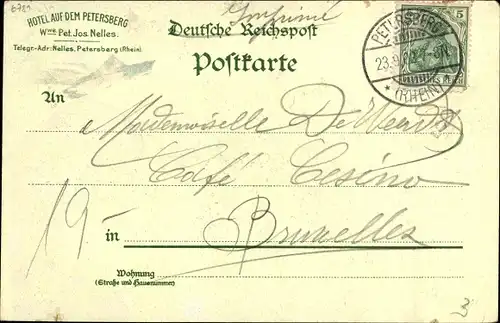 6789
HOTEL AUF DEM PETERSBERG
Wwe. Pet. Jos. Nelles.
Telegr.-Adr: Nelles, Petersberg (Rhein)
Imprimé
Deutsche Reichspost
Postkarte
PETERSBERG
23.9
* (RHEIN)
5
An
Mademoiselle De
Café Cesino
19
in Bruxelles
Wohnung
(Straße und Hausnummer)